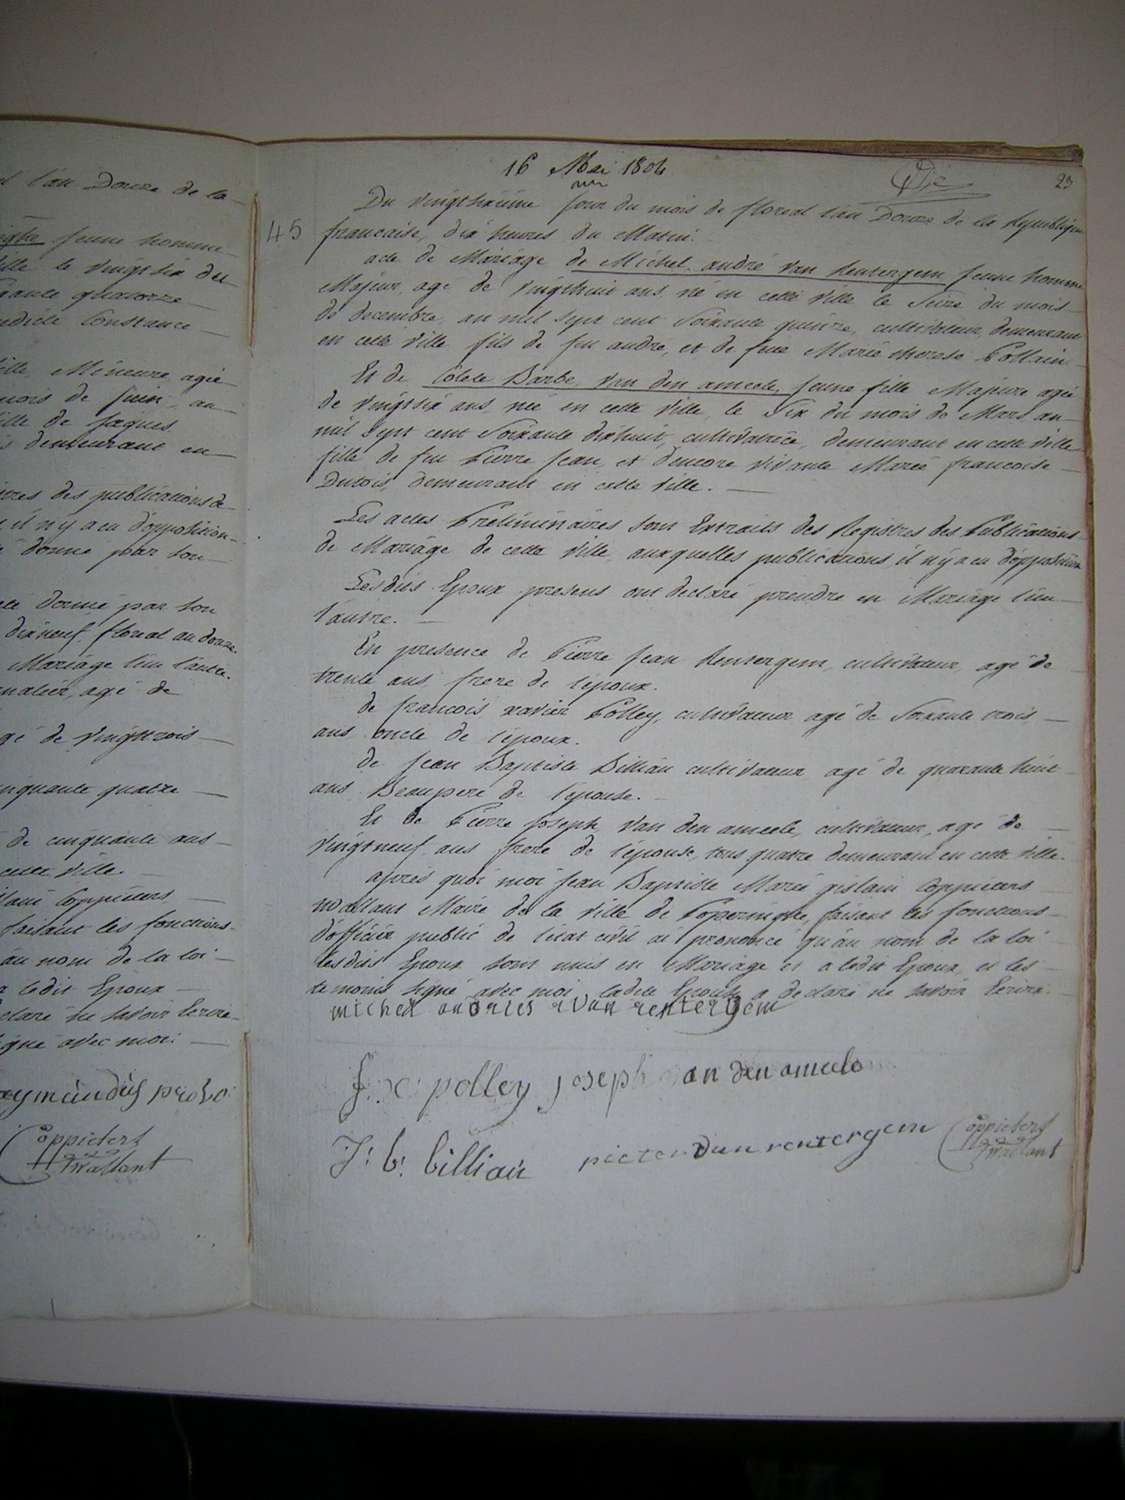 l'an Douze de la
jeune homme
ville le vingtsix du
soixante quatorze
Constance
fille Mineure, agée
mois de juin, an
fille de jaques
demeurant en
des publications de
il n'y a eu d'opposition
donné par son
donné par son
dixneuf floreal an douze
Mariage l'un l'autre.
agé de
agé de vingttrois
cinquante quatre
de cinquante ans
cette ville.
Coppieters
faisant les fonctions
au nom de la loi
a ledit Epoux
declaré ne savoir Ecrire
signé avec moi.
Coppieters
Wallant
16 Mai 1804
23
45
Du vingtsixième jour du mois de floreal l'an Douze de la Republique
francaise, dix heures du Matin.
acte de Mariage de Michel andré Van Rentergem jeune homme
Majeur, agé de vingthuit ans, né en cette ville le Seize du mois
de decembre, an mil sept cent Soixante quinze, cultivateur, demeurant
en cette ville fils de feu andré, et de feue Marie therese Follain
Et de Colete Barbe Van den ameele, jeune fille Majeure agée
de vingtsix ans, née en cette ville, le Six du mois de Mars an
mil sept cent Soixante dixhuit, cultivatrice, demeurant en cette ville
fille de feu Pierre jean, et d'encore vivante Marie francoise
Dubois, demeurant en cette ville.
Les actes Préliminaires sont Extraits des Registres des Publications
de Mariage de cette ville, auxquelles publications il n'y a eu d'opposition
Lesdits Epoux presens ont declaré prendre en Mariage l'un
l'autre.
En presence de Pierre jean Rentergem, cultivateur, agé de
trente ans, frere de l'epoux.
de francois xavier Polley, cultivateur agé de Soixante trois
ans, oncle de l'epoux.
de jean Baptiste Billiau cultivateur, agé de quarante huit
ans Beaupere de l'epouse.
Et de Pierre joseph Van den ameele, cultivateur, agé de
vingtneuf ans frere de l'épouse, tous quatre demeurant en cette ville.
apres quoi moi jean Baptiste Marie gislain Coppieters
Wallant Maire de la ville de Poperinghe, faisant les fonctions
d'officier public de l'etat civil ai prononcé qu'au nom de la loi
lesdits Epoux sont unis en Mariage et a ledit Epoux, et les
temoins signé avec moi, ladite Epouse a declaré ne savoir Ecrire
michel andries Van rentergem
f: x: polley joseph van den ameele
J: b: billiau pieter van rentergem
Coppieters
Wallant